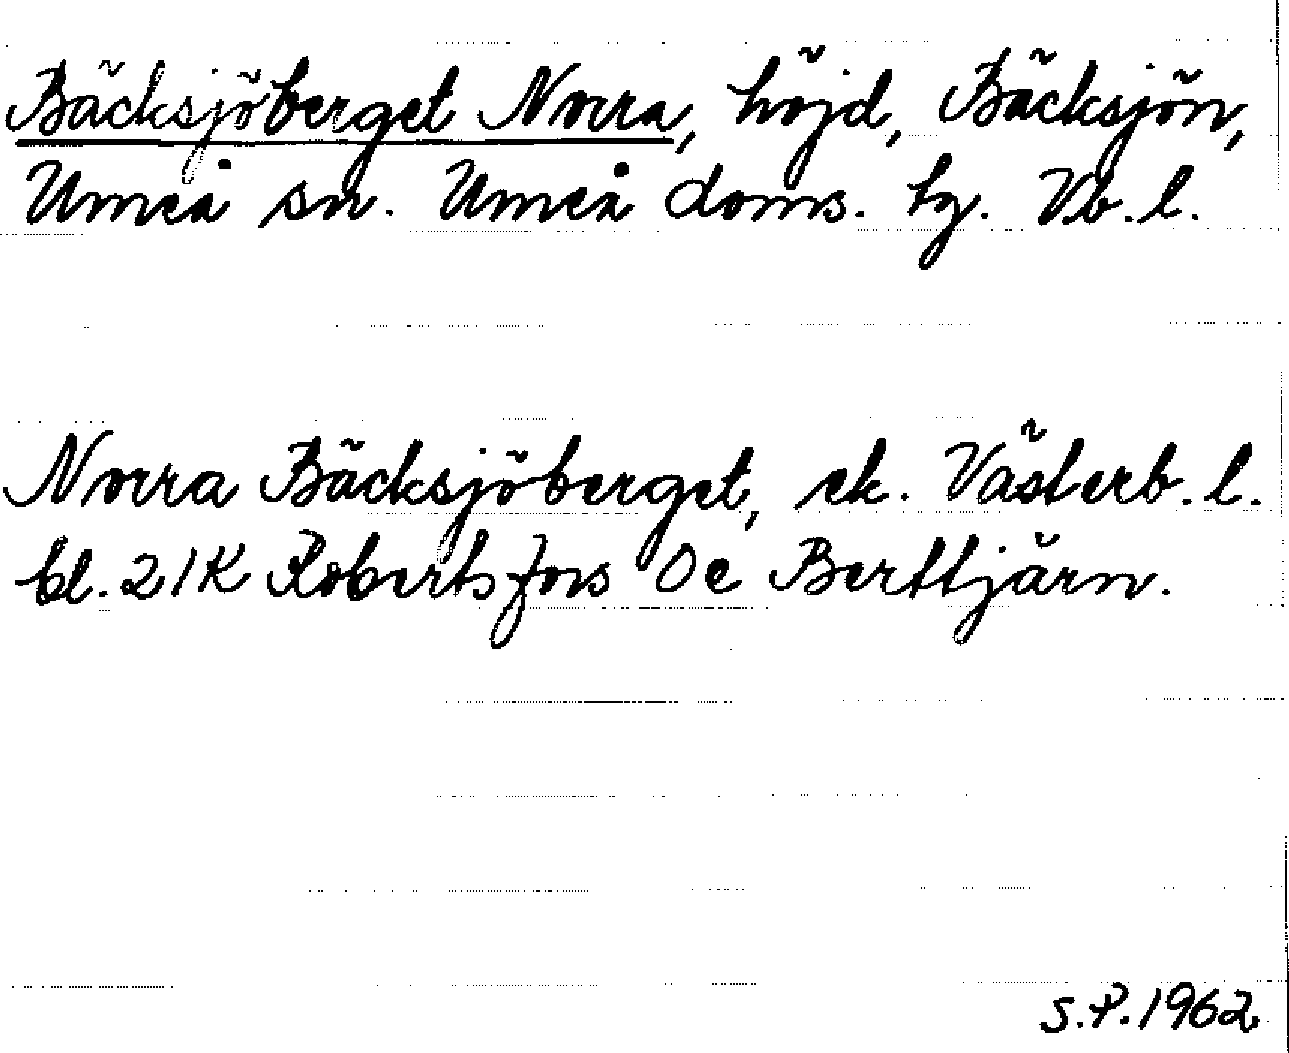 Bäcksjöberget Norra, höjd, Bäcksjön,
Umeå sn. Umeå doms. tg. Vb. l.
Norra Bäcksjöberget, ek. Västerb. l.
bl. 21K Robertsfors Oe Berttjärn.
S.P. 1962